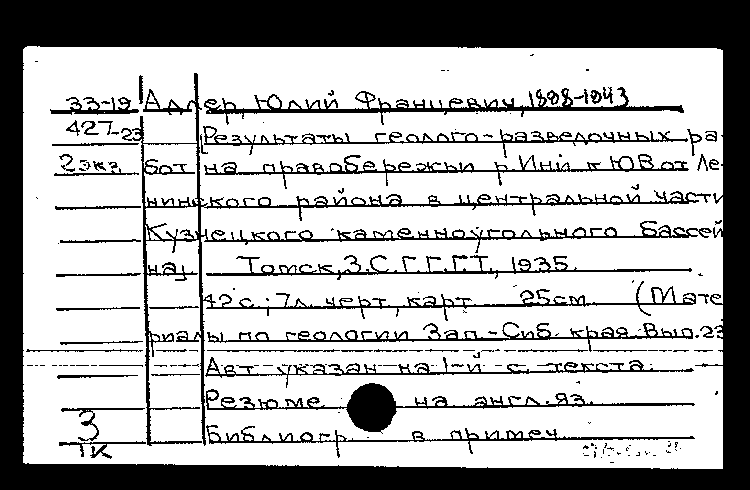 33-19 Адлер, Юлий Францевич, 1898-1943
427-23 [Результаты геолого-разведочных ра-
2 экз. бот на правобережьи р. Ини к ЮВ от Ле-
нинского района в центральной части
Кузнецкого каменноугольного бассей-
на]. Томск, З.С.Г.Г.Г.Т., 1935.
42 с.; 7 л. черт., карт. 25 см. (Мате-
риалы по геологии Зап.-Сиб. края. Вып. 23
Авт. указан на 1-й с. текста.
Резюме на англ. яз.
Библиогр. в примеч.
3
ТК